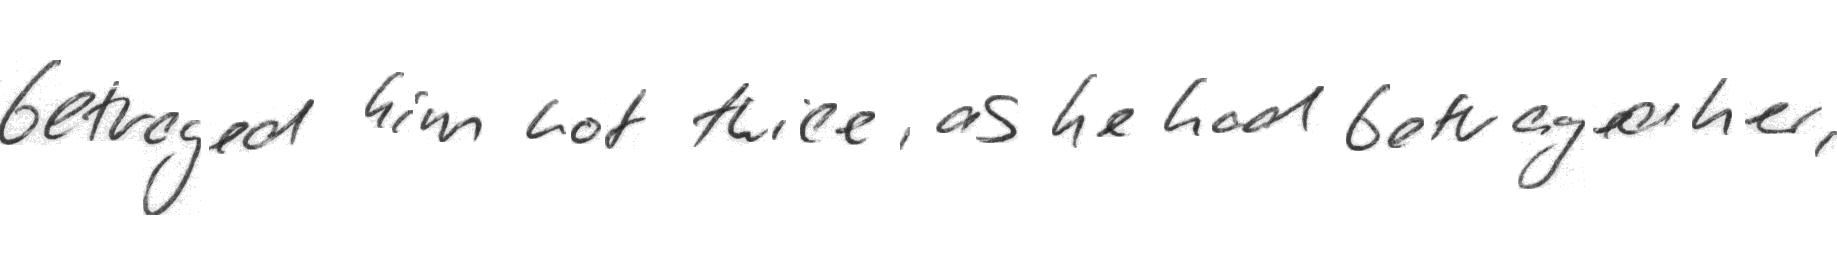 betrayed him not twice, as he had betrayed her,